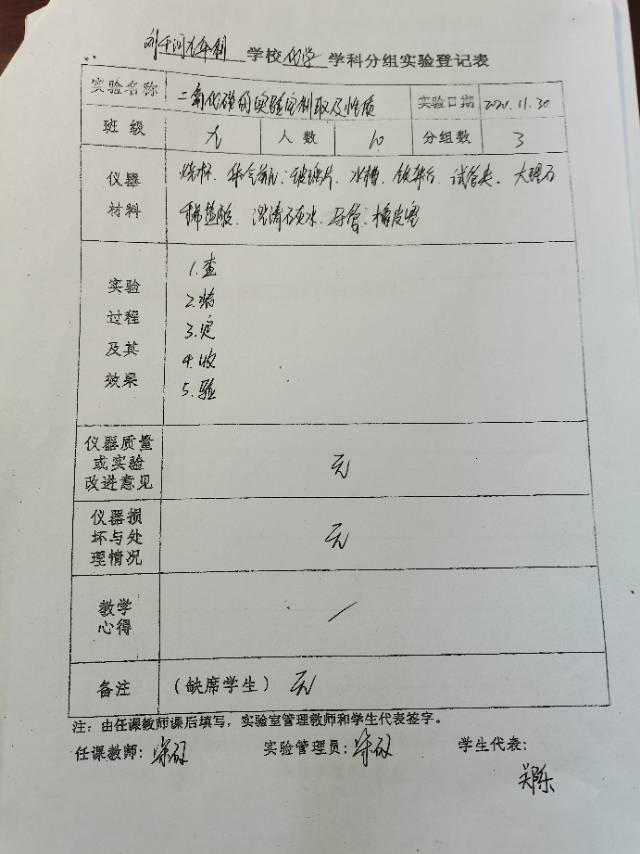 学校 化学 学科分组实验登记表
实验名称 二氧化碳的实验室制取及性质 实验日期 2020.11.30
班级 九 人数 10 分组数 3
仪器 烧杯、集气瓶、玻璃片、水槽、铁架台、试管夹、大理石
材料 稀盐酸、澄清石灰水、导管、橡皮塞
实验
过程
及其
效果
1.查
2.装
3.定
4.收
5.验
仪器质量
或实验
改进意见
无
仪器损
坏与处
理情况
无
教学
心得
/
备注 (缺席学生) 无
注:由任课教师课后填写,实验室管理教师和学生代表签字。
任课教师: 实验管理员: 学生代表: